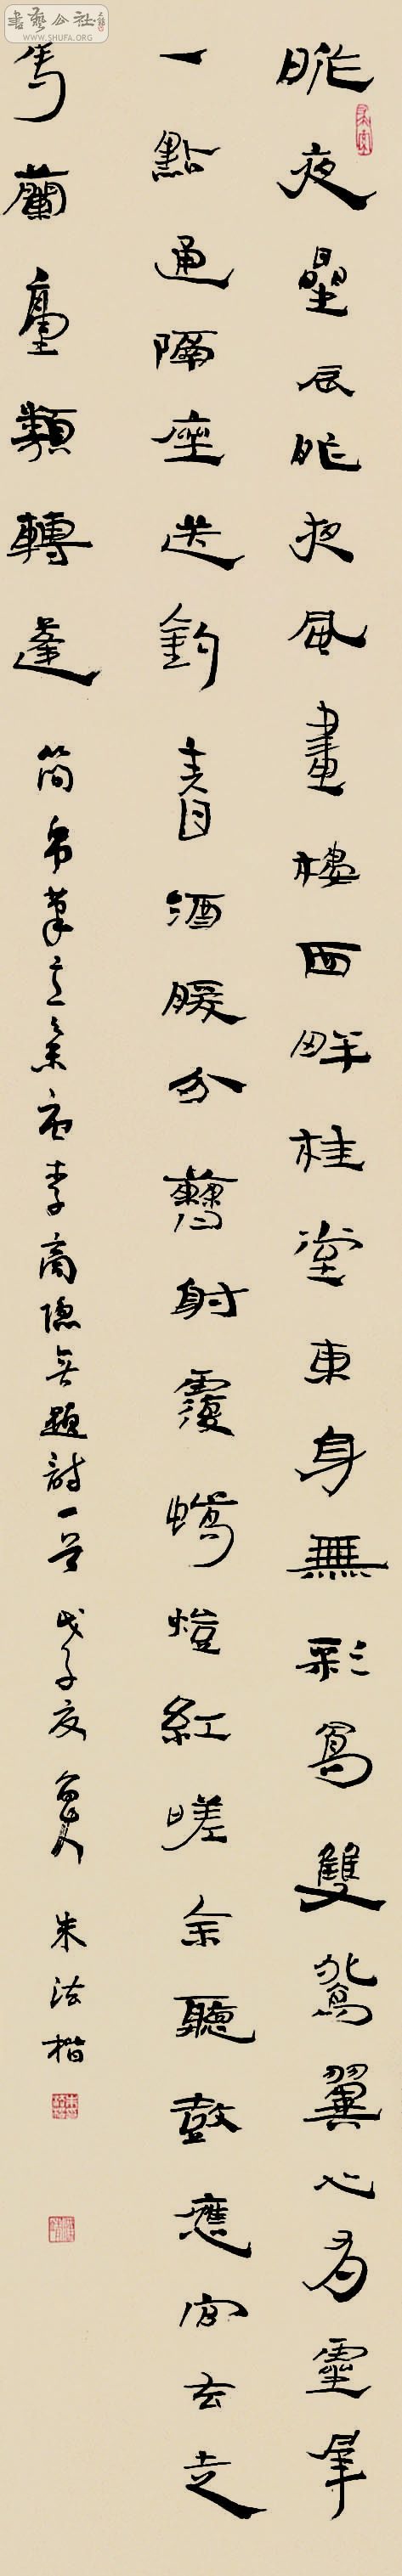 書藝公社
WWW.SHUFA.ORG
昨夜曐辰昨夜風畫樓西畔桂堂東身無彩鳳雙飛翼心有靈犀
一點通隔座送鈎春酒暖分曹射覆蠟燈紅嗟余聽鼓應官去走
馬蘭臺類轉蓬 簡帛筆意录唐李商隱無題詩一首 戊子夏 魯人 朱法楷